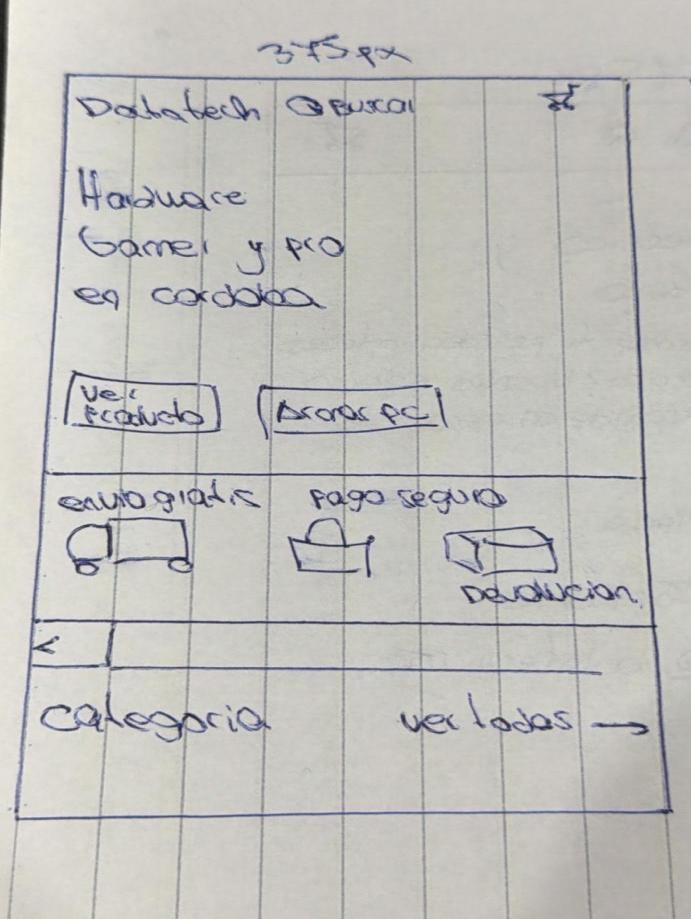 375px
Datatech Buscar
Hardware
Gamer y pro
en cordoba
Ver
Producto
Armar PC
envio gratis pago seguro
Devolucion
<
categoria ver todas →